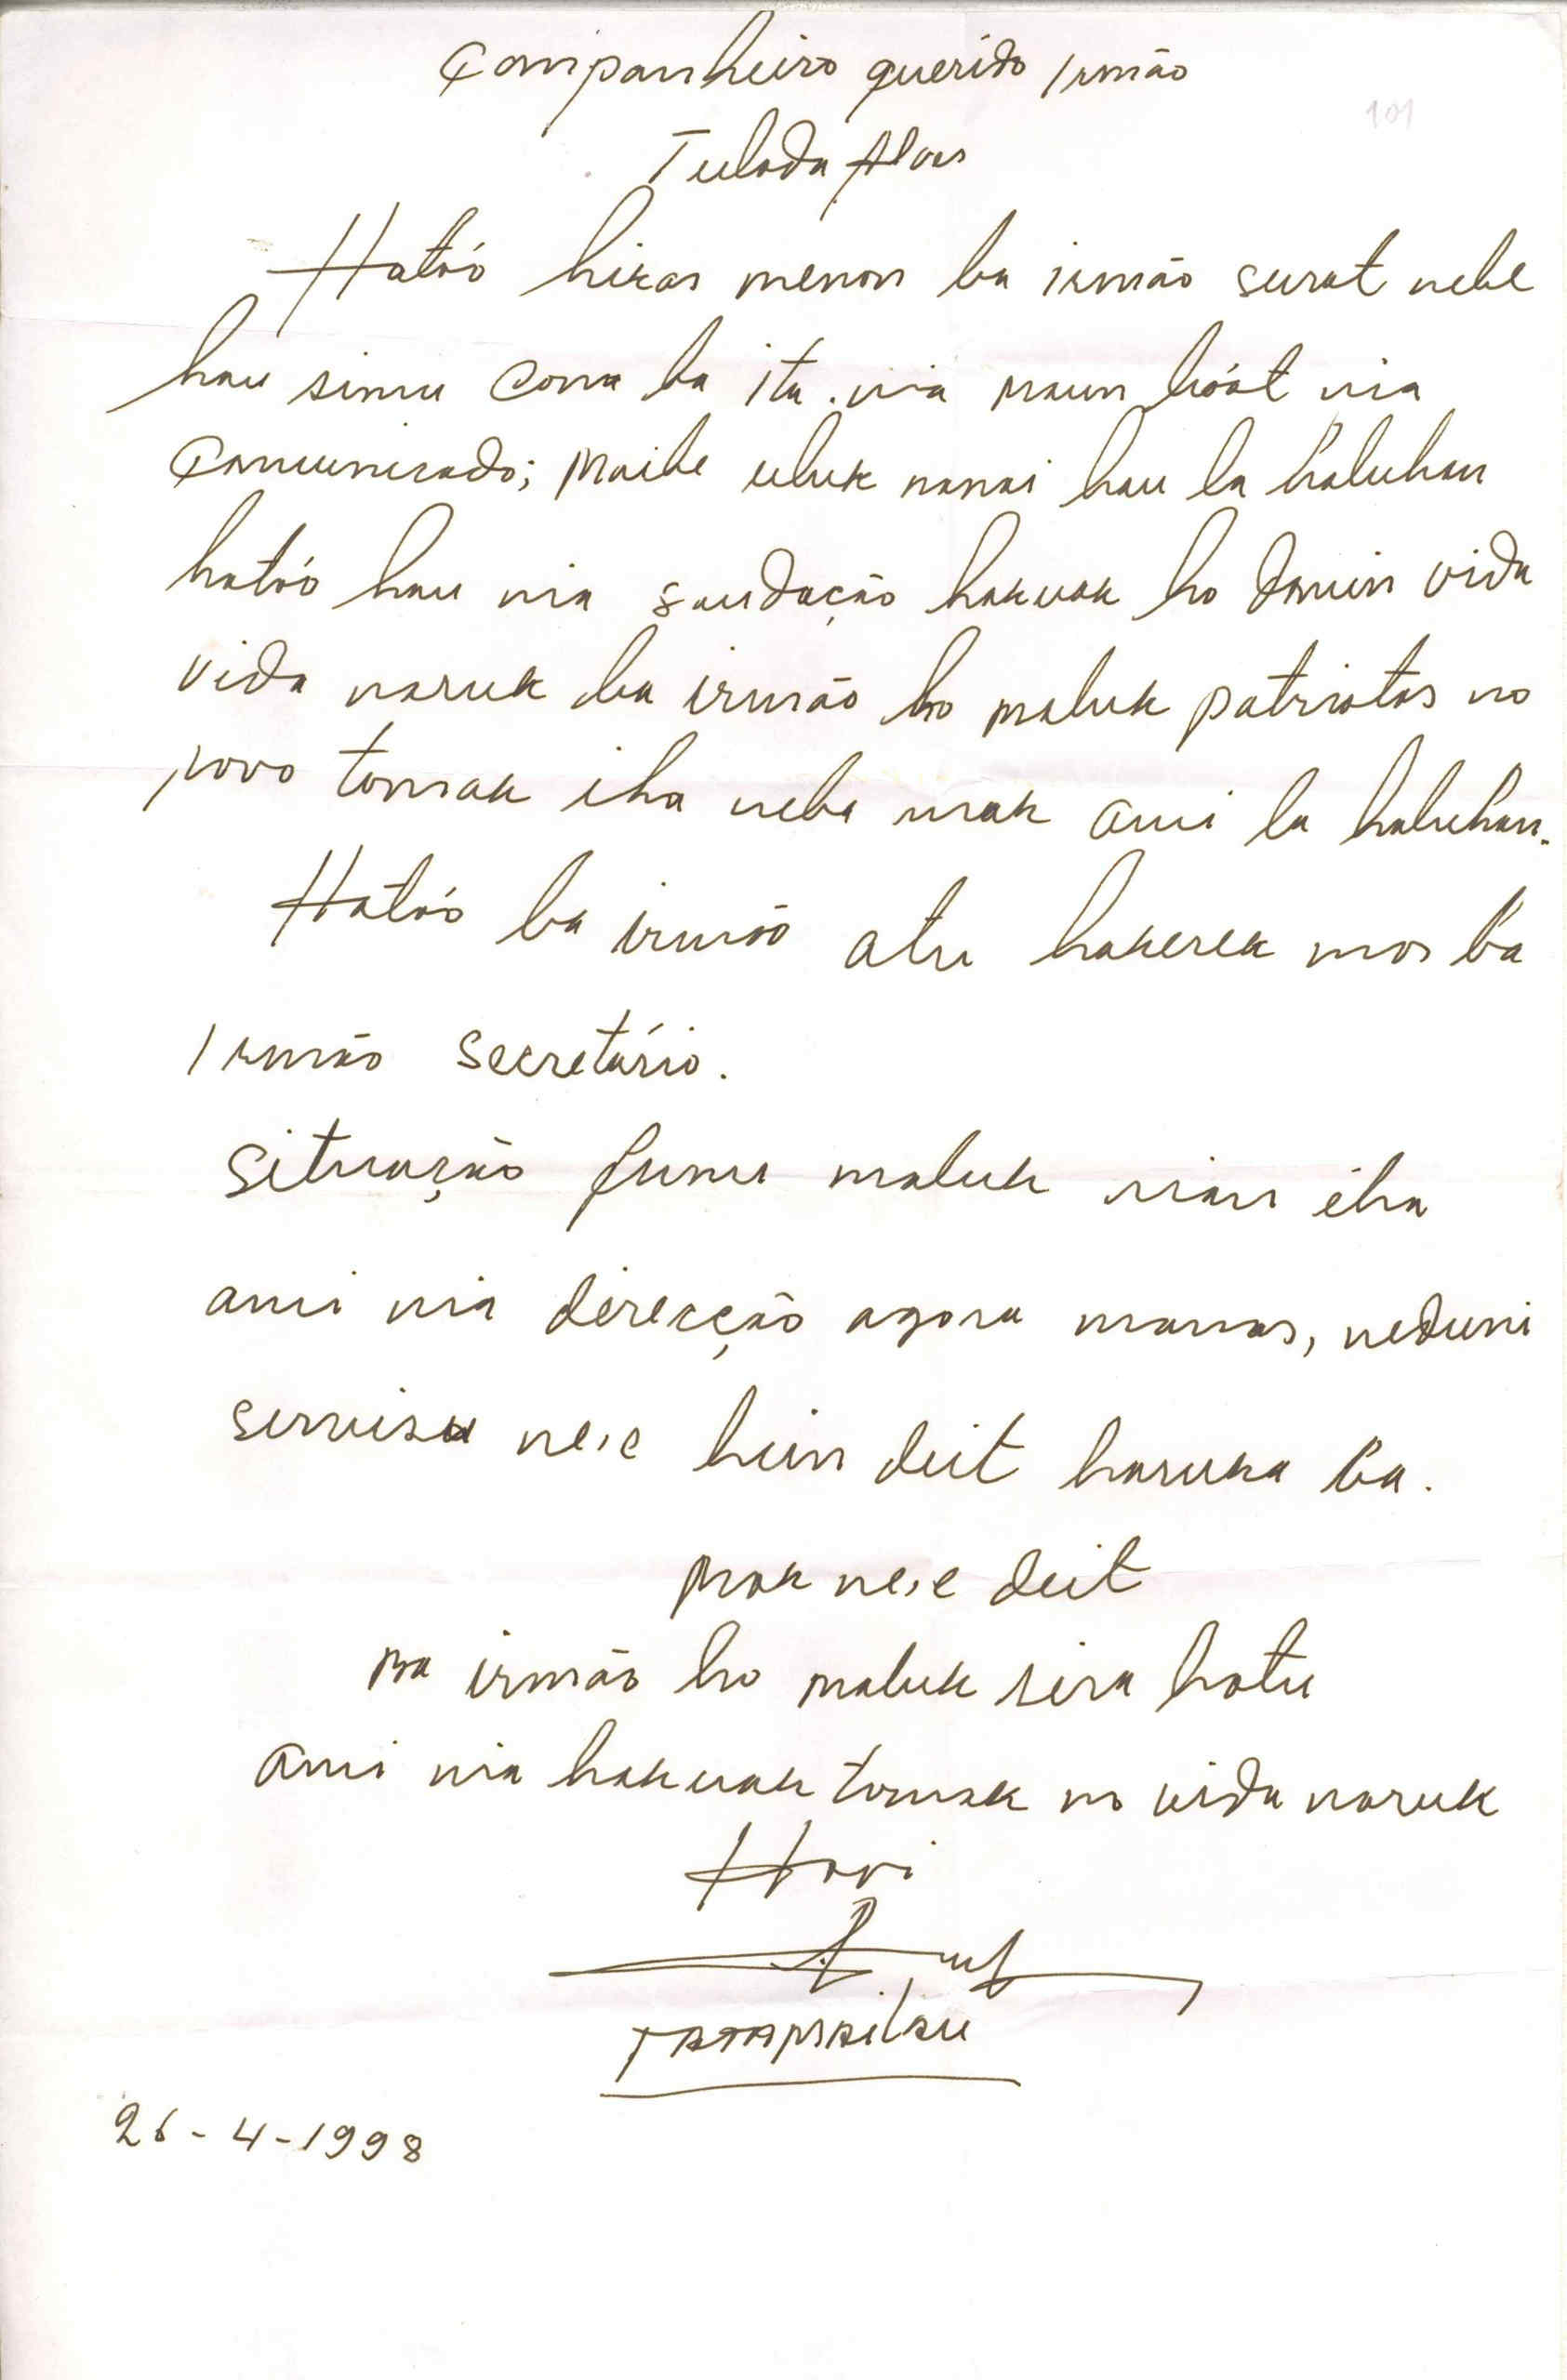 Companheiro querido Irmão
101
Tuloda Alas
Hatóo hikas menon ba irmão surat nebe
hau simu cona ba ita nia maun bóot nia
Comunicado; Maibe uluk nanai hau la haluhan
hatóo hau nia saudação hakuak ho domin vida
vida naruk ba irmão ho maluk patriotas no
povo tomak iha neba mak ami la haluhan.
Hatóo ba irmão atu hakerek mos ba
Irmão secretário.
Situação funu maluk nian iha
ami nia direcção agora manas, neduni
servisu ne,e hein deit haruka ba.
Mak ne,e deit
Ba irmão ho maluk sira hotu
Ami nia hakuak tomak no vida naruk
Hosi
TATAMAILAU
26-4-1998